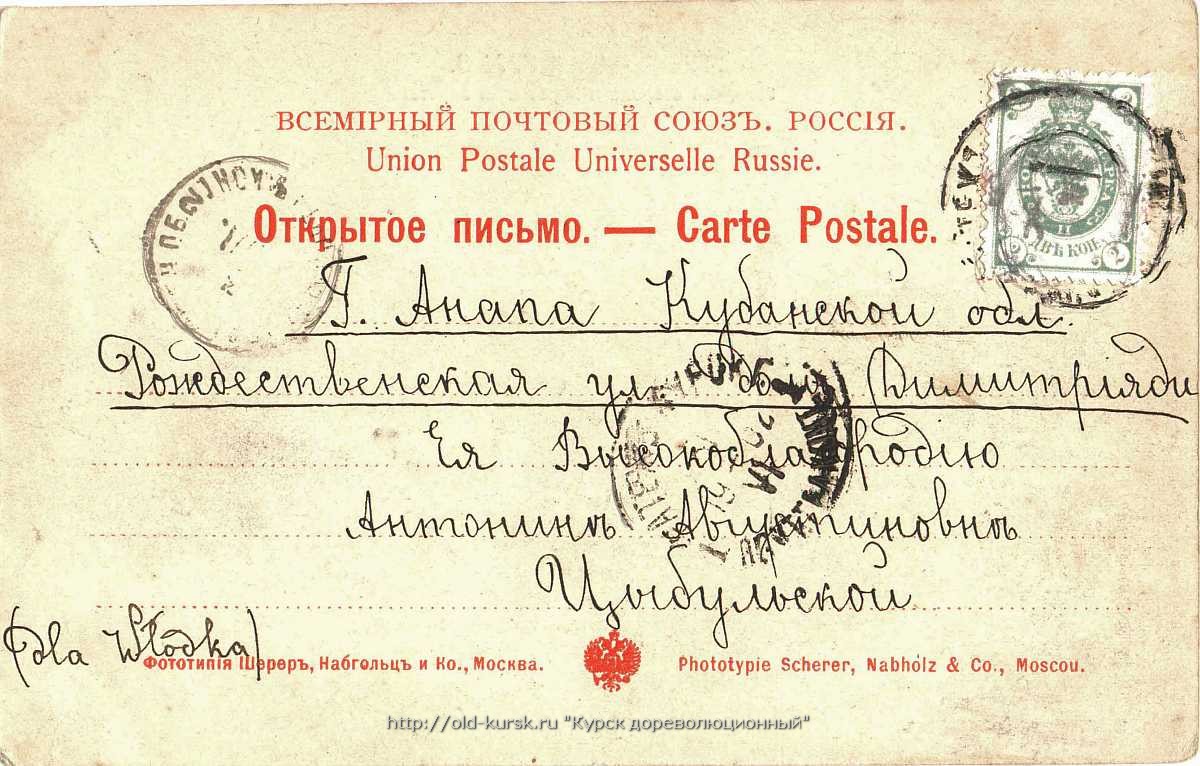 ВСЕМІРНЫЙ ПОЧТОВЫЙ СОЮЗЪ. РОССІЯ.
Union Postale Universelle Russie.
Открытое письмо. — Carte Postale.
2 2
ДВѢ КОП.
Г. Анапа Кубанской обл.
Рождественская ул. Димитріяди
Ея Высокоблагородію
Антонинѣ Августиновнѣ
Цыбульской
(dla Włodka)
Фототипія Шереръ, Набгольцъ и Ко., Москва.
Phototypie Scherer, Nabholz & Co., Moscou.
http://old-kursk.ru "Курск дореволюционный"